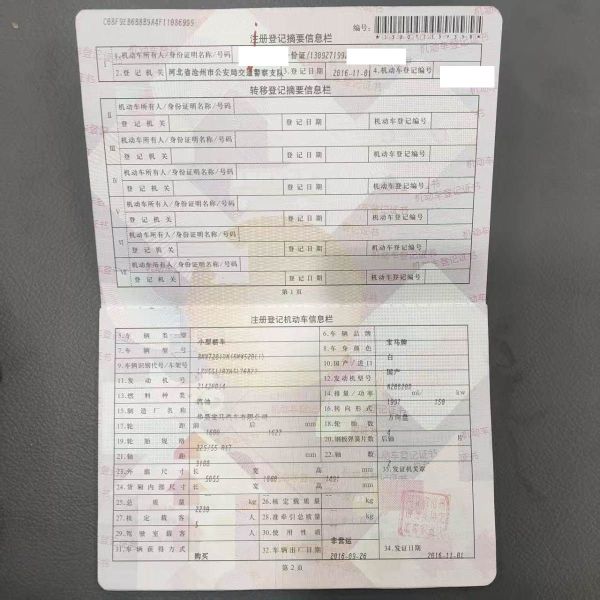 注册登记摘要信息栏
编号:
1.机动车所有人/身份证明名称/号码
2.登记机关 河北省沧州市公安局交通警察支队 3.登记日期 2016-11-01 4.机动车登记编号
转移登记摘要信息栏
Ⅱ 机动车所有人/身份证明名称/号码
登记机关 登记日期 机动车登记编号
Ⅲ 机动车所有人/身份证明名称/号码
登记机关 登记日期 机动车登记编号
Ⅳ 机动车所有人/身份证明名称/号码
登记机关 登记日期 机动车登记编号
Ⅴ 机动车所有人/身份证明名称/号码
登记机关 登记日期 机动车登记编号
Ⅵ 机动车所有人/身份证明名称/号码
登记机关 登记日期 机动车登记编号
Ⅶ 机动车所有人/身份证明名称/号码
登记机关 登记日期 机动车登记编号
第1页
注册登记机动车信息栏
5.车辆类型 小型轿车 6.车辆品牌 宝马牌
7.车辆型号 8.车身颜色 白
9.车辆识别代号/车架号 10.国产/进口 国产
11.发动机号 12.发动机型号
13.燃料种类 汽油 14.排量/功率 1997 ml/ kw
15.制造厂名称 华晨宝马汽车有限公司 16.转向形式 方向盘
17.轮距 前 1600 后 1627 mm 18.轮胎数 4
19.轮胎规格 225/55 R17 20.钢板弹簧片数 后轴 片
21.轴距 3108 mm 22.轴数
23.外廓尺寸 长 5055 宽 高 mm 33.发证机关章
24.货厢内部尺寸 长 宽 高 mm
25.总质量 kg 26.核定载质量 kg
27.核定载客 5 人 28.准牵引总质量 kg
29.驾驶室载客 人 30.使用性质 非营运
31.车辆获得方式 购买 32.车辆出厂日期 2016-09-26 34.发证日期 2016-11-01
第2页